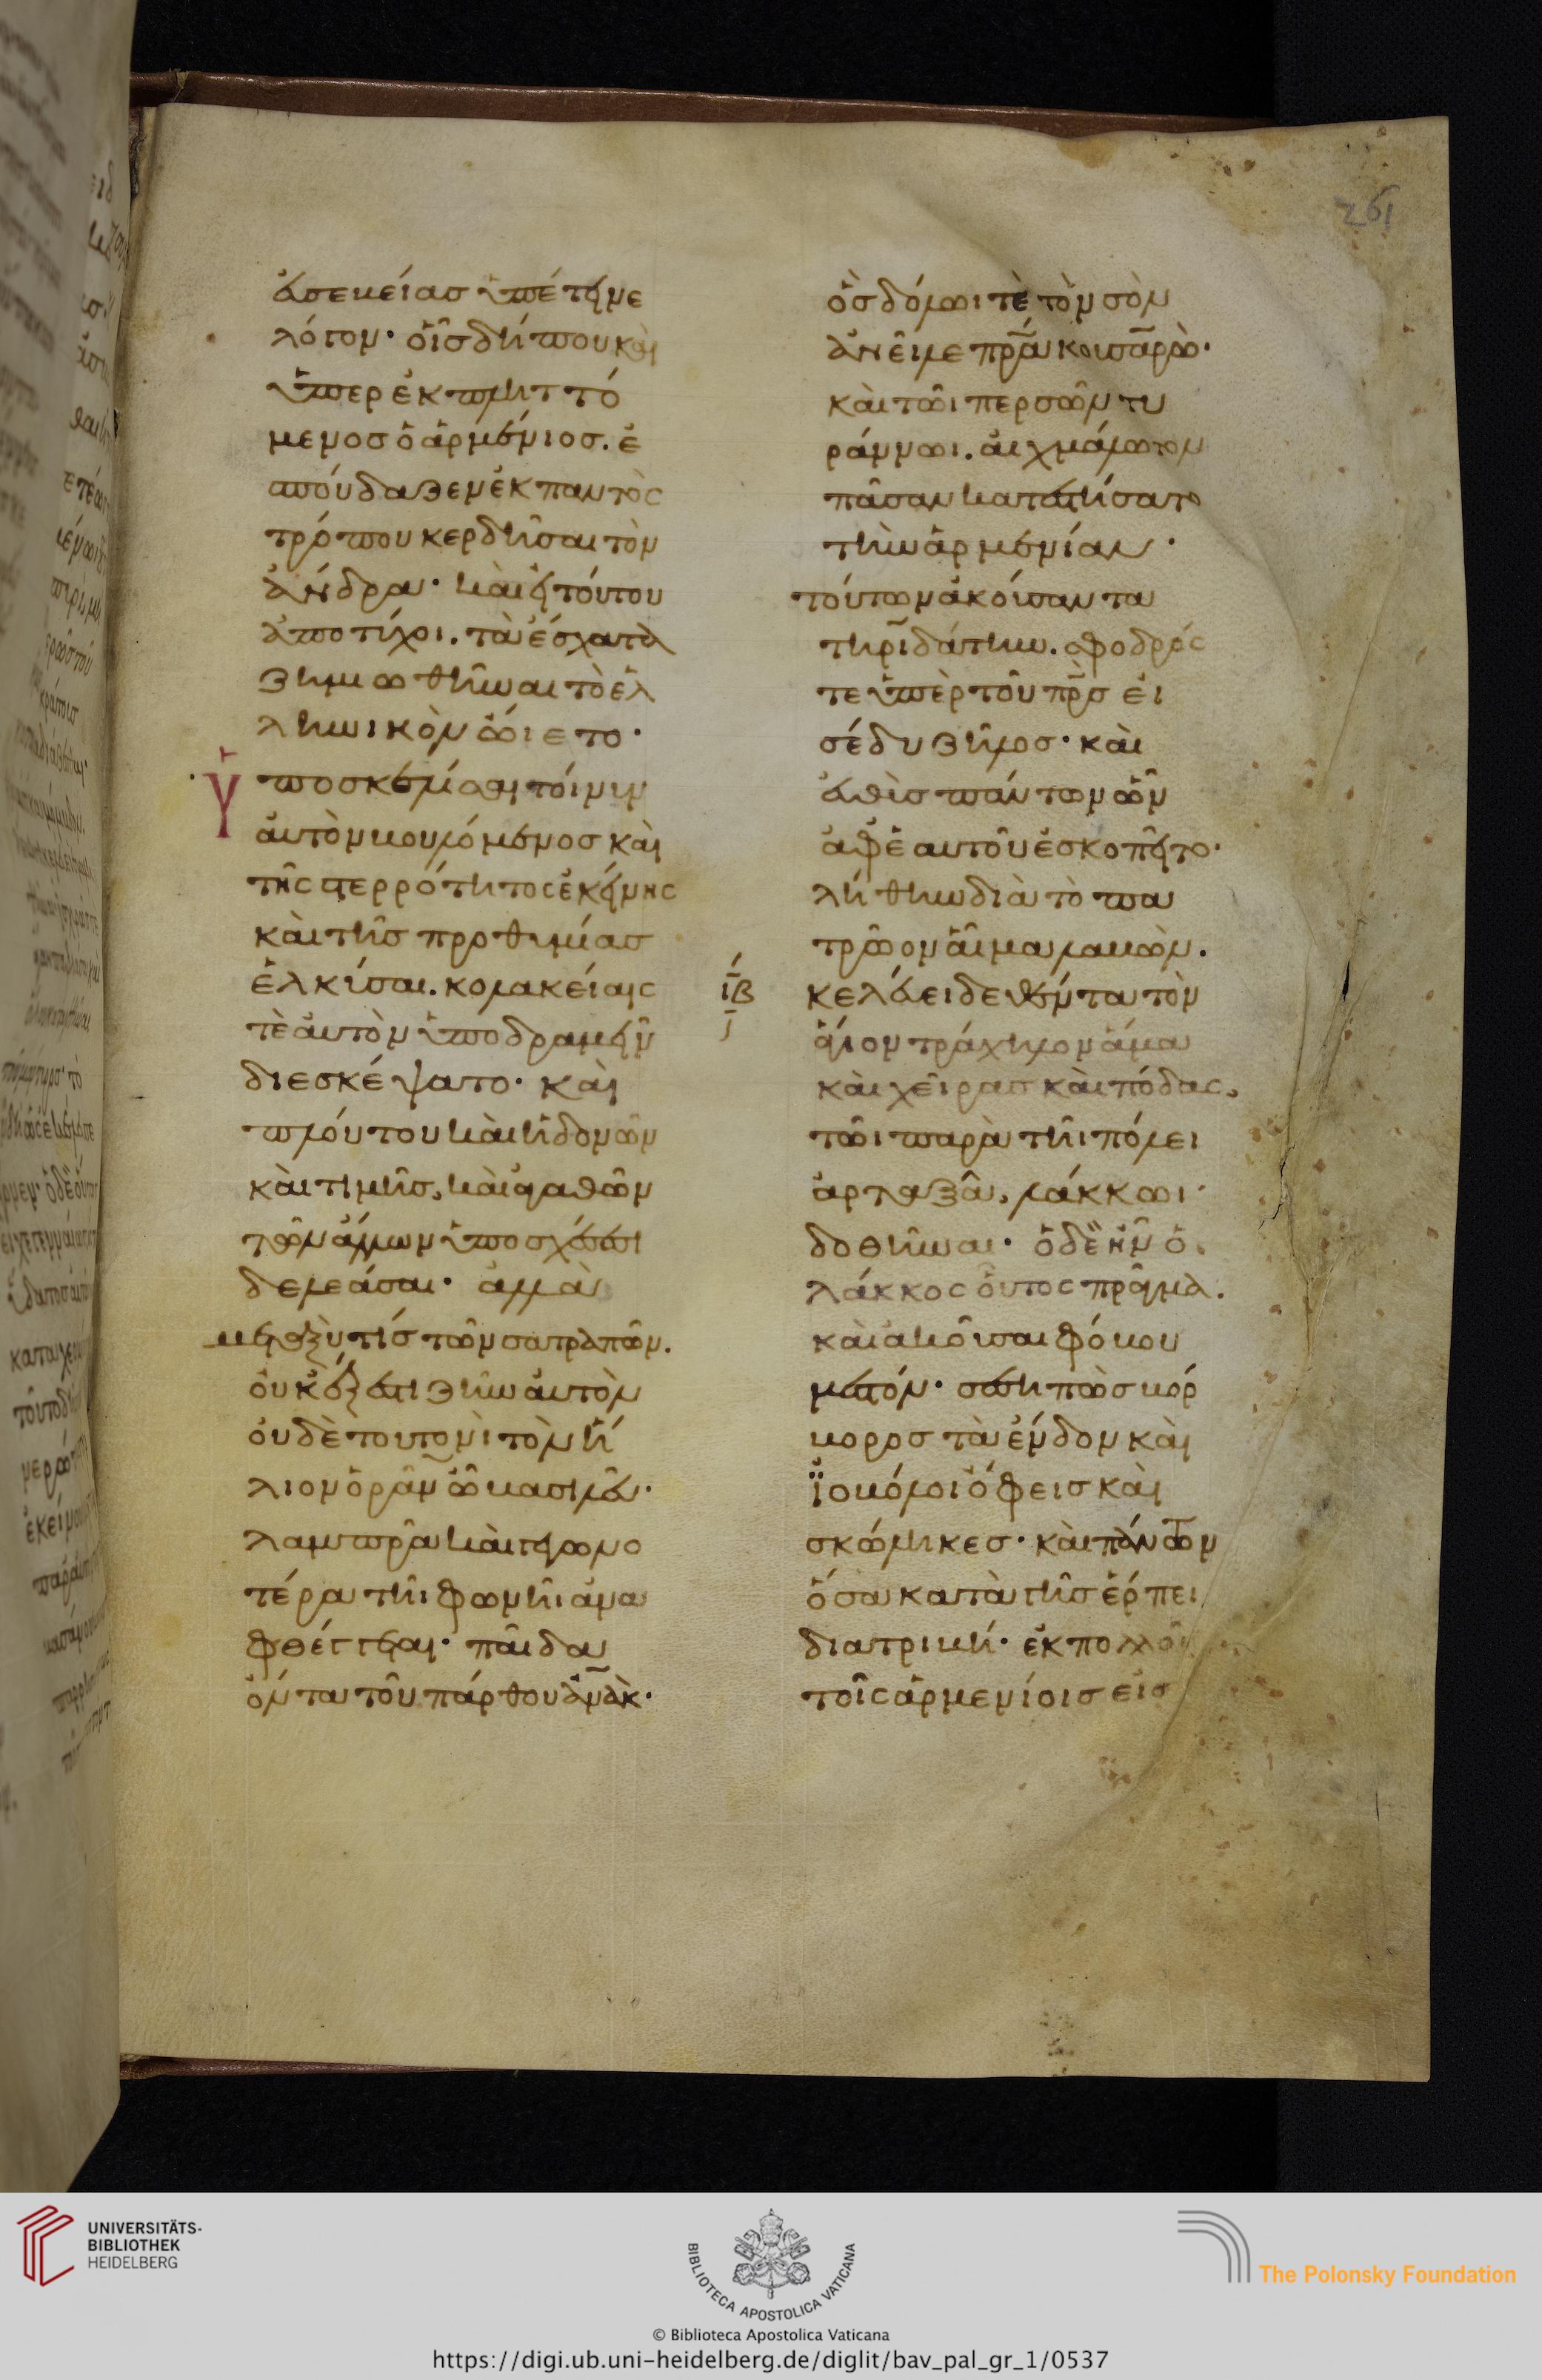 ἀσεβείας ὑπέτεινε
λόγον· οἷς δήπου καὶ
ὑπερεκπληττό
μενος ὁ ἀρμένιος. ἐ
σπούδαζεν ἐκ παντὸς
τρόπου κερδῆσαι τὸν
ἄνδρα· καὶ εἰ τούτου
ἀποτύχοι. τὰ ἔσχατα
ζημιωθῆναι τὸ ἑλ
ληνικὸν ὤιετο·
Ὑποσκελίσαι τοίνυν
αὐτὸν βουλόμενος καὶ
τῆς στερρότητος ἐκείνης
καὶ τῆς προθυμίας
ἑλκύσαι. κολακείαις
τὲ αὐτὸν ὑποδραμεῖν
διεσκέψατο· καὶ
πλούτου καὶ ἡδονῶν
καὶ τιμῆς, καὶ ἀγαθῶν
τῶν ἄλλων ὑποσχέσεσι
δελεάσαι· ἀλλὰ
μεταξύ τίς τῶν σατραπῶν.
οὐκ ἔξεστι ζῆν αὐτὸν
οὐδὲ τουτονὶ τὸν ἥ
λιον ὁρᾶν ὦ βασιλεῦ·
λαμπρᾶ καὶ γεγωνο
τέρα τῆι φωνῆι ἅμα
φθέγγεται· παῖδα
ὄντα τοῦ πάρθου ἀνὰκ·
261
ὃς δόλωι τὲ τὸν σὸν
ἀνεῖλε πρ̅α κουσαρὼ·
καὶ τῶι περσῶν τυ
ράννωι. αἰχμάλωτον
πᾶσαν κατεστήσατο
τὴν ἀρμενίαν·
τούτων ἀκούσαντα
τηριδάτην. σφοδρός
τε ὑπὲρ τοῦ πρ̅ς εἰ
σέδυ ζῆλος· καὶ
εὐθὺς πάντων ὧν
ἀφ' ἑαυτοῦ ἐσκοπεῖτο·
λήθην διὰ τὸ πα
τρῶον αἷμα λαβὼν.
ιβ κελεύει δεθέντα τὸν
ἅγιον τράχηλον ἅμα
καὶ χεῖρας καὶ πόδας,
τῶι παρὰ τῆι πόλει
ἀρταξᾶ, λάκκωι
δοθῆναι· ὁ δὲ ἦν ὁ
λάκκος οὗτος πρᾶγμα.
καὶ ἀκοῦσαι φόβου
μεστόν· σεσηπὼς βόρ
βορος τὰ ἔνδον καὶ
ϊοβόλοι ὄφεις καὶ
σκώληκες· καὶ πάντων
ὅσα κατὰ γῆς ἕρπει
διατριβή· ἐκ πολλοῦ
τοῖς ἀρμενίοις εἰς
UNIVERSITÄTS-
BIBLIOTHEK
HEIDELBERG
BIBLIOTECA APOSTOLICA VATICANA
The Polonsky Foundation
© Biblioteca Apostolica Vaticana
https://digi.ub.uni-heidelberg.de/diglit/bav_pal_gr_1/0537